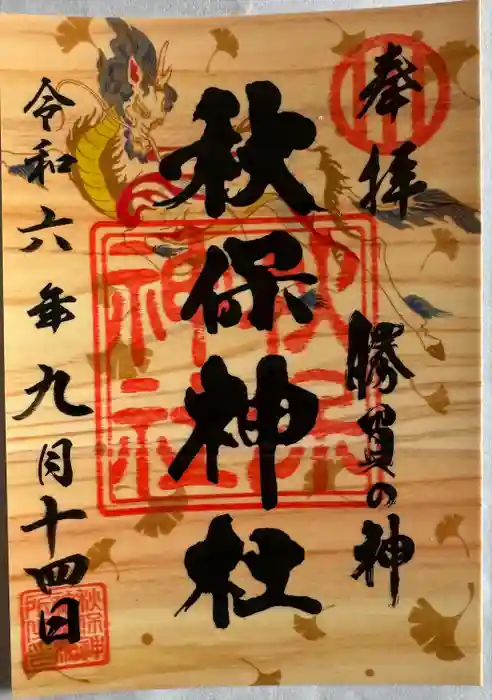 奉拝
勝負の神
秋保神社
秋保神社
令和六年九月十四日